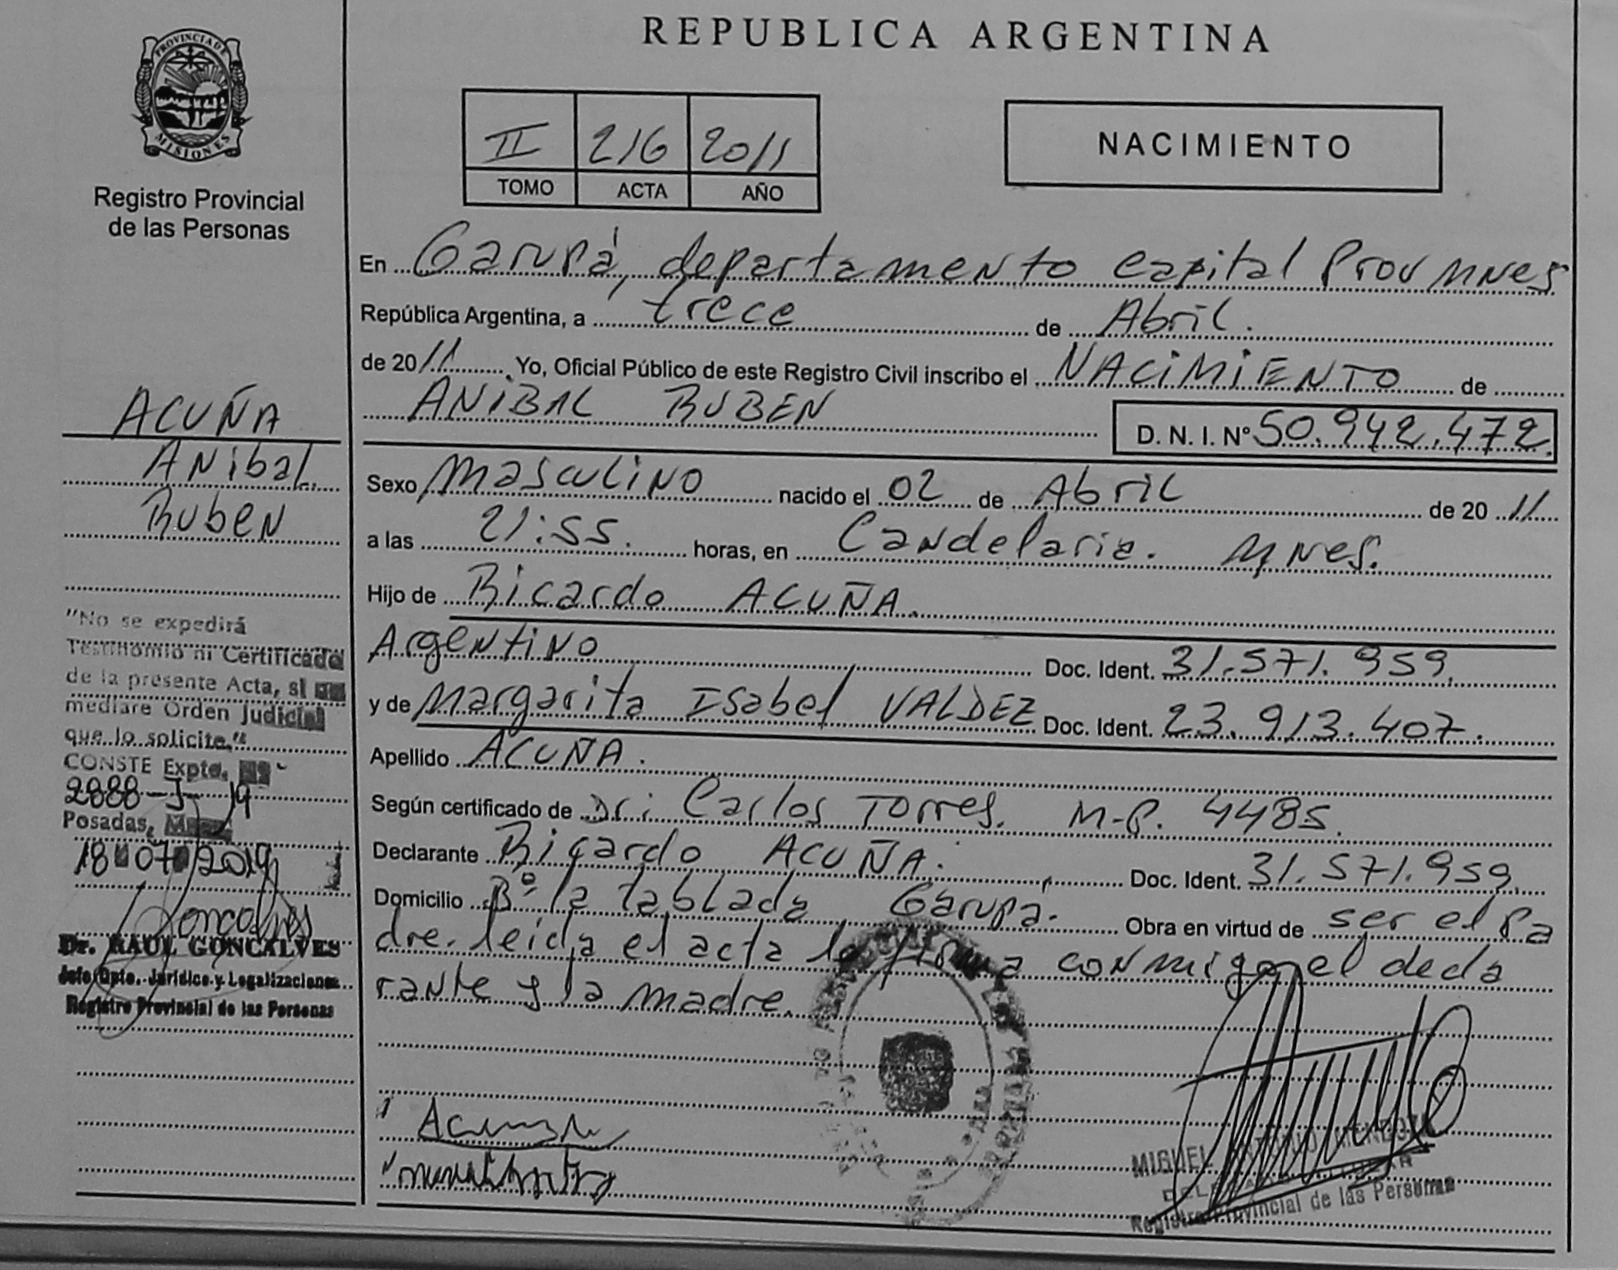 REPUBLICA ARGENTINA
PROVINCIA DE MISIONES
Registro Provincial
de las Personas
II 216 2011
TOMO ACTA AÑO
NACIMIENTO
En Garupá, departamento capital Prov Mnes
República Argentina, a trece de Abril.
de 2011. Yo, Oficial Público de este Registro Civil inscribo el NACIMIENTO de
ANIBAL RUBEN
D. N. I. Nº 50.942.472
Sexo Masculino nacido el 02 de Abril de 2011
a las 21:55. horas, en Candelaria. Mnes.
Hijo de Ricardo ACUÑA.
Argentino Doc. Ident. 31.571.959.
y de Margarita Isabel VALDEZ Doc. Ident. 23.913.407.
Apellido ACUÑA.
Según certificado de Dr: Carlos Torres. M-P. 4485.
Declarante Ricardo ACUÑA. Doc. Ident. 31.571.959.
Domicilio Bº la tablada Garupa. Obra en virtud de ser el Pa
dre. leida el acta la firma conmigo, el decla
rante y la madre.
ACUÑA
Anibal
Ruben
"No se expedirá
Testimonio ni Certificado
de la presente Acta, si
mediare Orden Judicial
que lo solicite."
CONSTE Expte.
2888-J-19
Posadas,
18 07 2019
Goncalves
Dr. RAUL GONCALVES
Jefe Dpto. Jurídico y Legalizaciones
Registro Provincial de las Personas
MIGUEL ANTONIO MENDOZA
Registro Provincial de las Personas